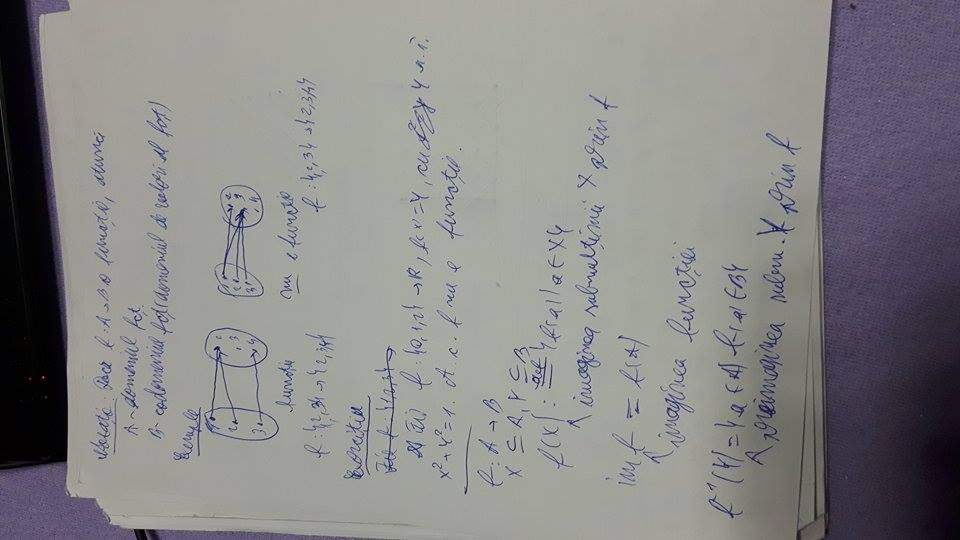 Notație: Dacă f: A → B o funcție, atunci
A - domeniul fct.
B - codomeniul fct (domeniul de valori al fct)
Exemple
1 2 3
1 2 3 4
funcție
f: {1,2,3} → {1,2,3,4}
1 2 3
1 2 3 4
nu e funcție
f: {1,2,3} → {1,2,3,4}
Exercițiu
f: {0,1,2} → R, f(x)=y, a.î.
x²+y²=1. A.c. f nu e funcție.
f: A → B
X ⊆ A, Y ⊆ B
f(X) := {f(a) | a ∈ X}
imaginea submulțimii X prin f
im f = f(A)
imaginea funcției
f⁻¹(Y) = {a ∈ A | f(a) ∈ B}
preimaginea subm. Y prin f